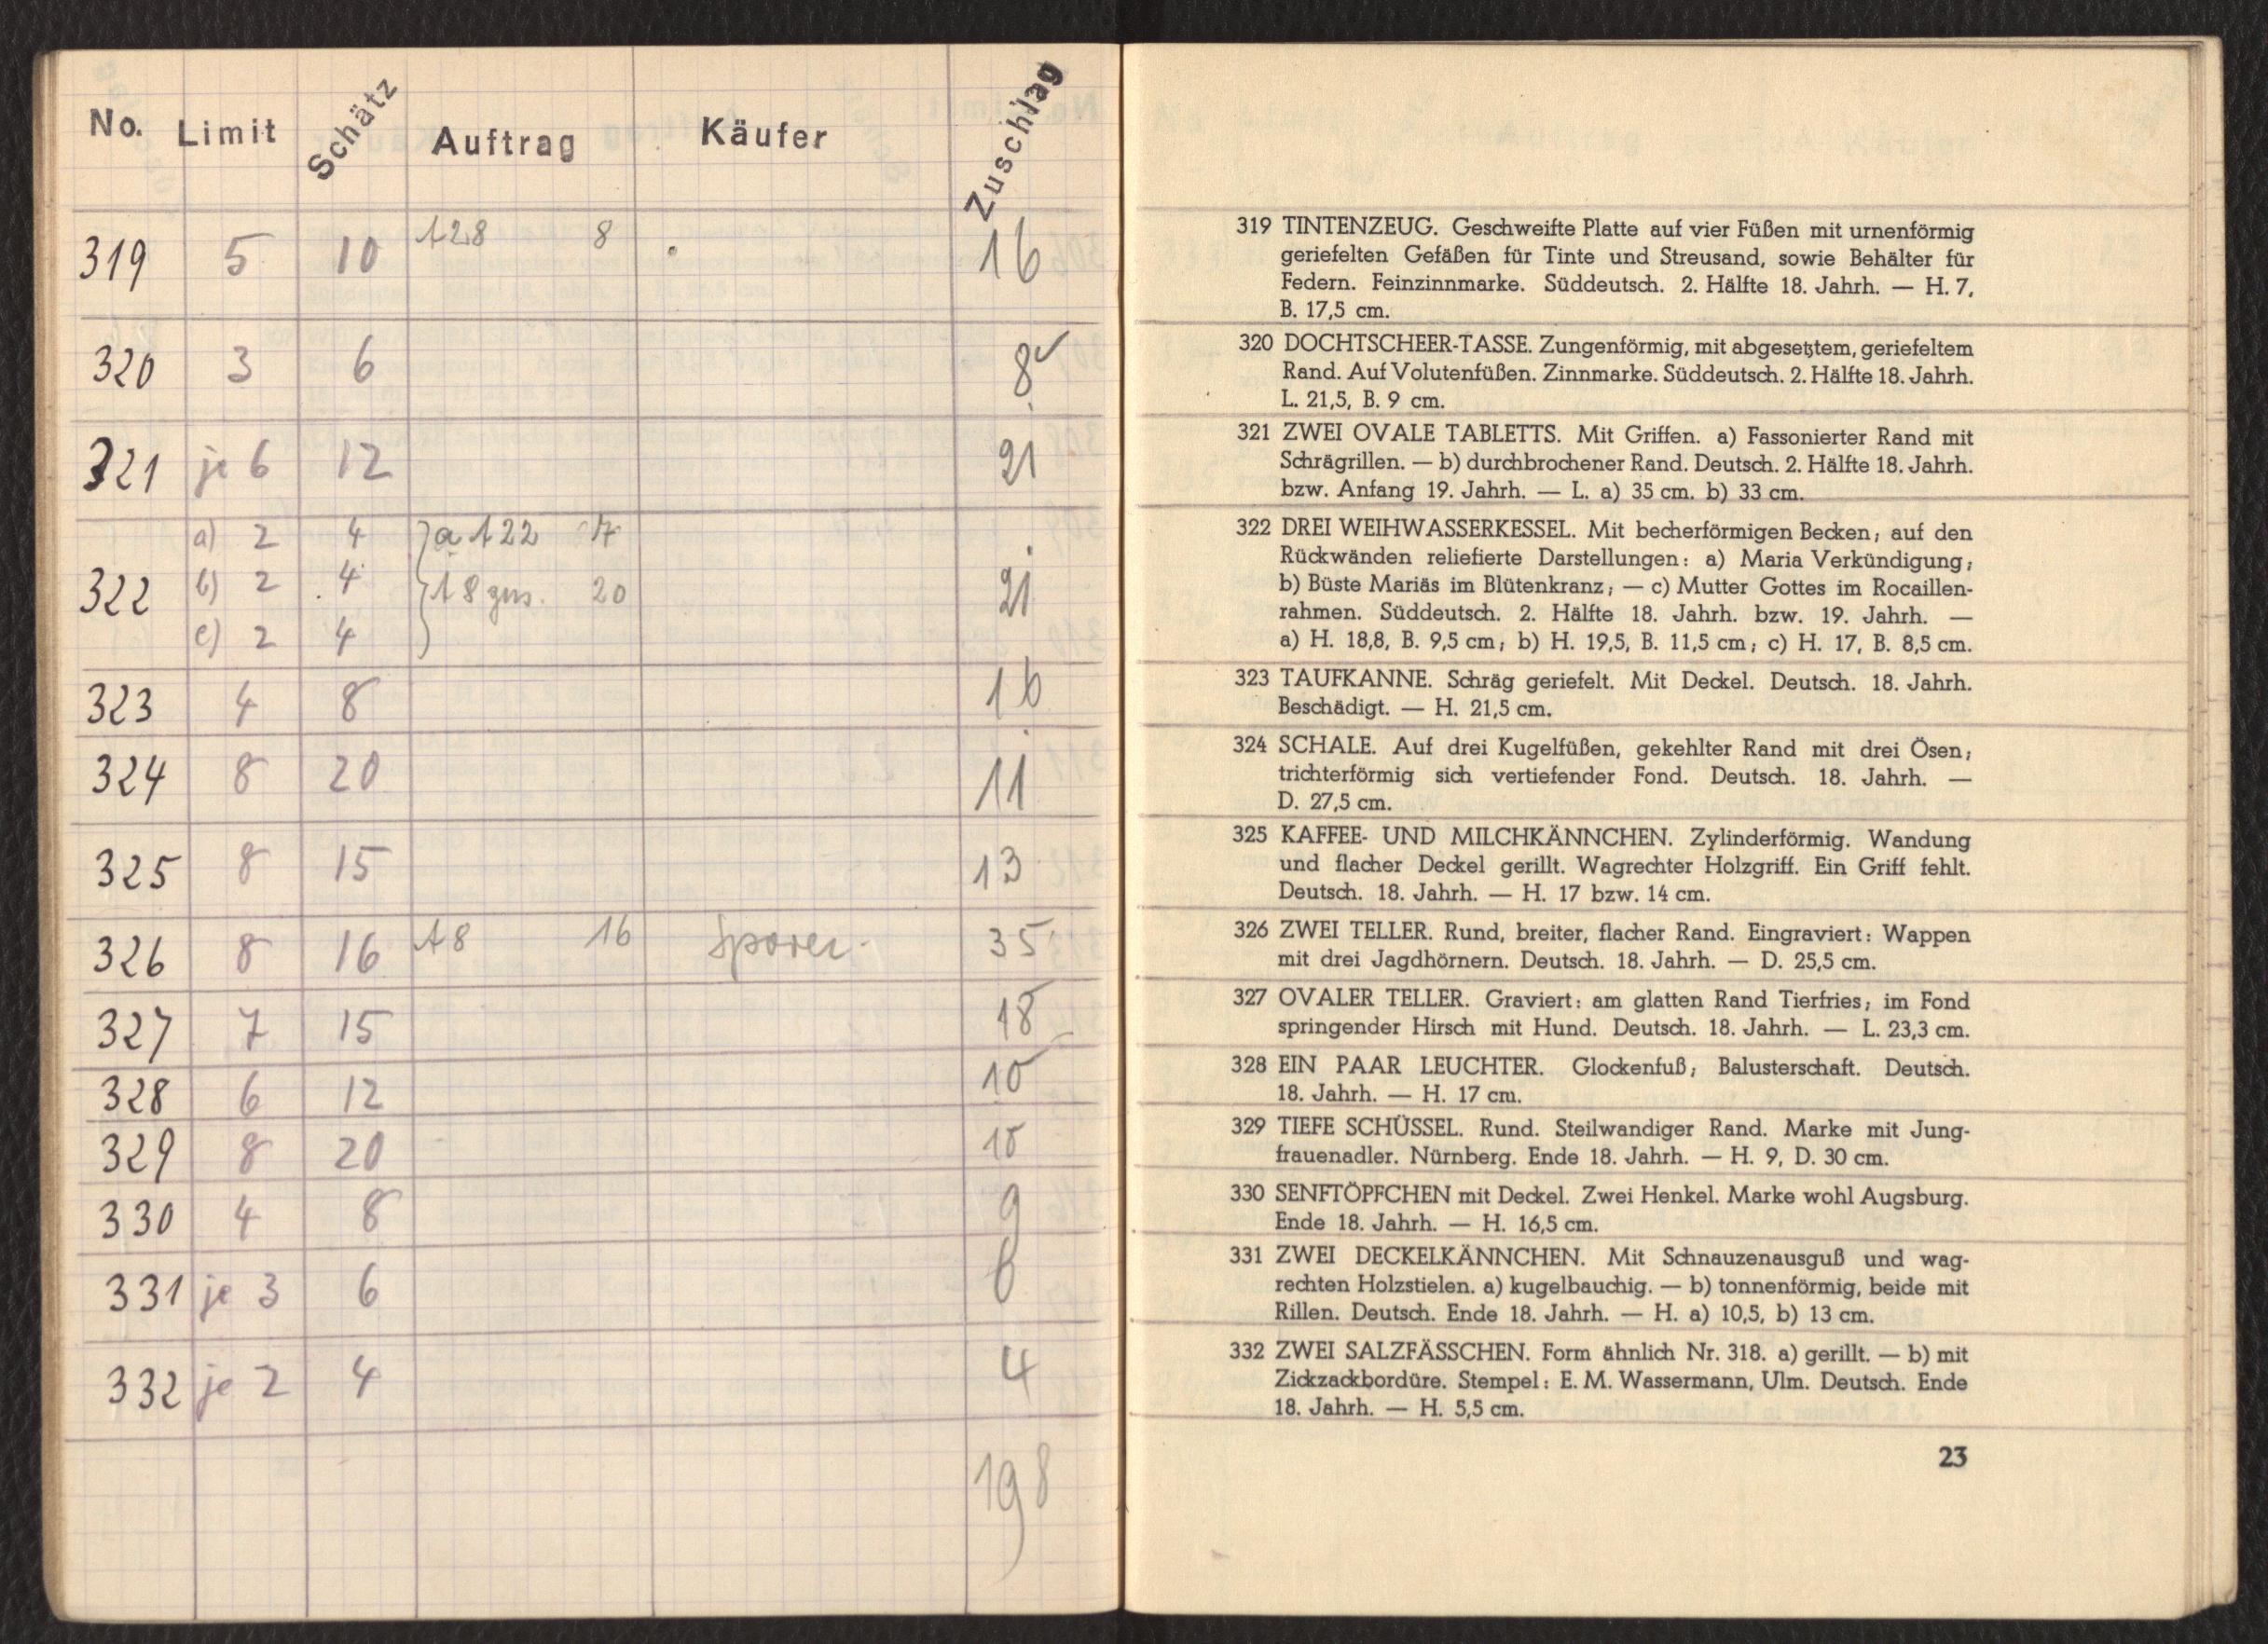 No. Limit Schätz Auftrag Käufer Zuschlag
319 5 10 A28 8 16
320 3 6 8
321 je 6 12 21
a) 2 4 a A22 7
322 b) 2 4 A8 20 21
c) 2 4
323 4 8 16
324 8 20 11
325 8 15 13
326 8 16 A8 16 Sporer 35
327 7 15 18
328 6 12 10
329 8 20 10
330 4 8 9
331 je 3 6 6
332 je 2 4 4
198
319 TINTENZEUG. Geschweifte Platte auf vier Füßen mit urnenförmig
geriefelten Gefäßen für Tinte und Streusand, sowie Behälter für
Federn. Feinzinnmarke. Süddeutsch. 2. Hälfte 18. Jahrh. — H. 7,
B. 17,5 cm.
320 DOCHTSCHEER-TASSE. Zungenförmig, mit abgesetztem, geriefeltem
Rand. Auf Volutenfüßen. Zinnmarke. Süddeutsch. 2. Hälfte 18. Jahrh.
L. 21,5, B. 9 cm.
321 ZWEI OVALE TABLETTS. Mit Griffen. a) Fassonierter Rand mit
Schrägrillen. — b) durchbrochener Rand. Deutsch. 2. Hälfte 18. Jahrh.
bzw. Anfang 19. Jahrh. — L. a) 35 cm. b) 33 cm.
322 DREI WEIHWASSERKESSEL. Mit becherförmigen Becken; auf den
Rückwänden reliefierte Darstellungen: a) Maria Verkündigung;
b) Büste Mariäs im Blütenkranz; — c) Mutter Gottes im Rocaillen-
rahmen. Süddeutsch. 2. Hälfte 18. Jahrh. bzw. 19. Jahrh. —
a) H. 18,8, B. 9,5 cm; b) H. 19,5, B. 11,5 cm; c) H. 17, B. 8,5 cm.
323 TAUFKANNE. Schräg geriefelt. Mit Deckel. Deutsch. 18. Jahrh.
Beschädigt. — H. 21,5 cm.
324 SCHALE. Auf drei Kugelfüßen, gekehlter Rand mit drei Ösen;
trichterförmig sich vertiefender Fond. Deutsch. 18. Jahrh. —
D. 27,5 cm.
325 KAFFEE- UND MILCHKÄNNCHEN. Zylinderförmig. Wandung
und flacher Deckel gerillt. Wagrechter Holzgriff. Ein Griff fehlt.
Deutsch. 18. Jahrh. — H. 17 bzw. 14 cm.
326 ZWEI TELLER. Rund, breiter, flacher Rand. Eingraviert: Wappen
mit drei Jagdhörnern. Deutsch. 18. Jahrh. — D. 25,5 cm.
327 OVALER TELLER. Graviert: am glatten Rand Tierfries; im Fond
springender Hirsch mit Hund. Deutsch. 18. Jahrh. — L. 23,3 cm.
328 EIN PAAR LEUCHTER. Glockenfuß; Balusterschaft. Deutsch.
18. Jahrh. — H. 17 cm.
329 TIEFE SCHÜSSEL. Rund. Steilwandiger Rand. Marke mit Jung-
frauenadler. Nürnberg. Ende 18. Jahrh. — H. 9, D. 30 cm.
330 SENFTÖPFCHEN mit Deckel. Zwei Henkel. Marke wohl Augsburg.
Ende 18. Jahrh. — H. 16,5 cm.
331 ZWEI DECKELKÄNNCHEN. Mit Schnauzenausguß und wag-
rechten Holzstielen. a) kugelbauchig. — b) tonnenförmig, beide mit
Rillen. Deutsch. Ende 18. Jahrh. — H. a) 10,5, b) 13 cm.
332 ZWEI SALZFÄSSCHEN. Form ähnlich Nr. 318. a) gerillt. — b) mit
Zickzackbordüre. Stempel: E. M. Wassermann, Ulm. Deutsch. Ende
18. Jahrh. — H. 5,5 cm.
23